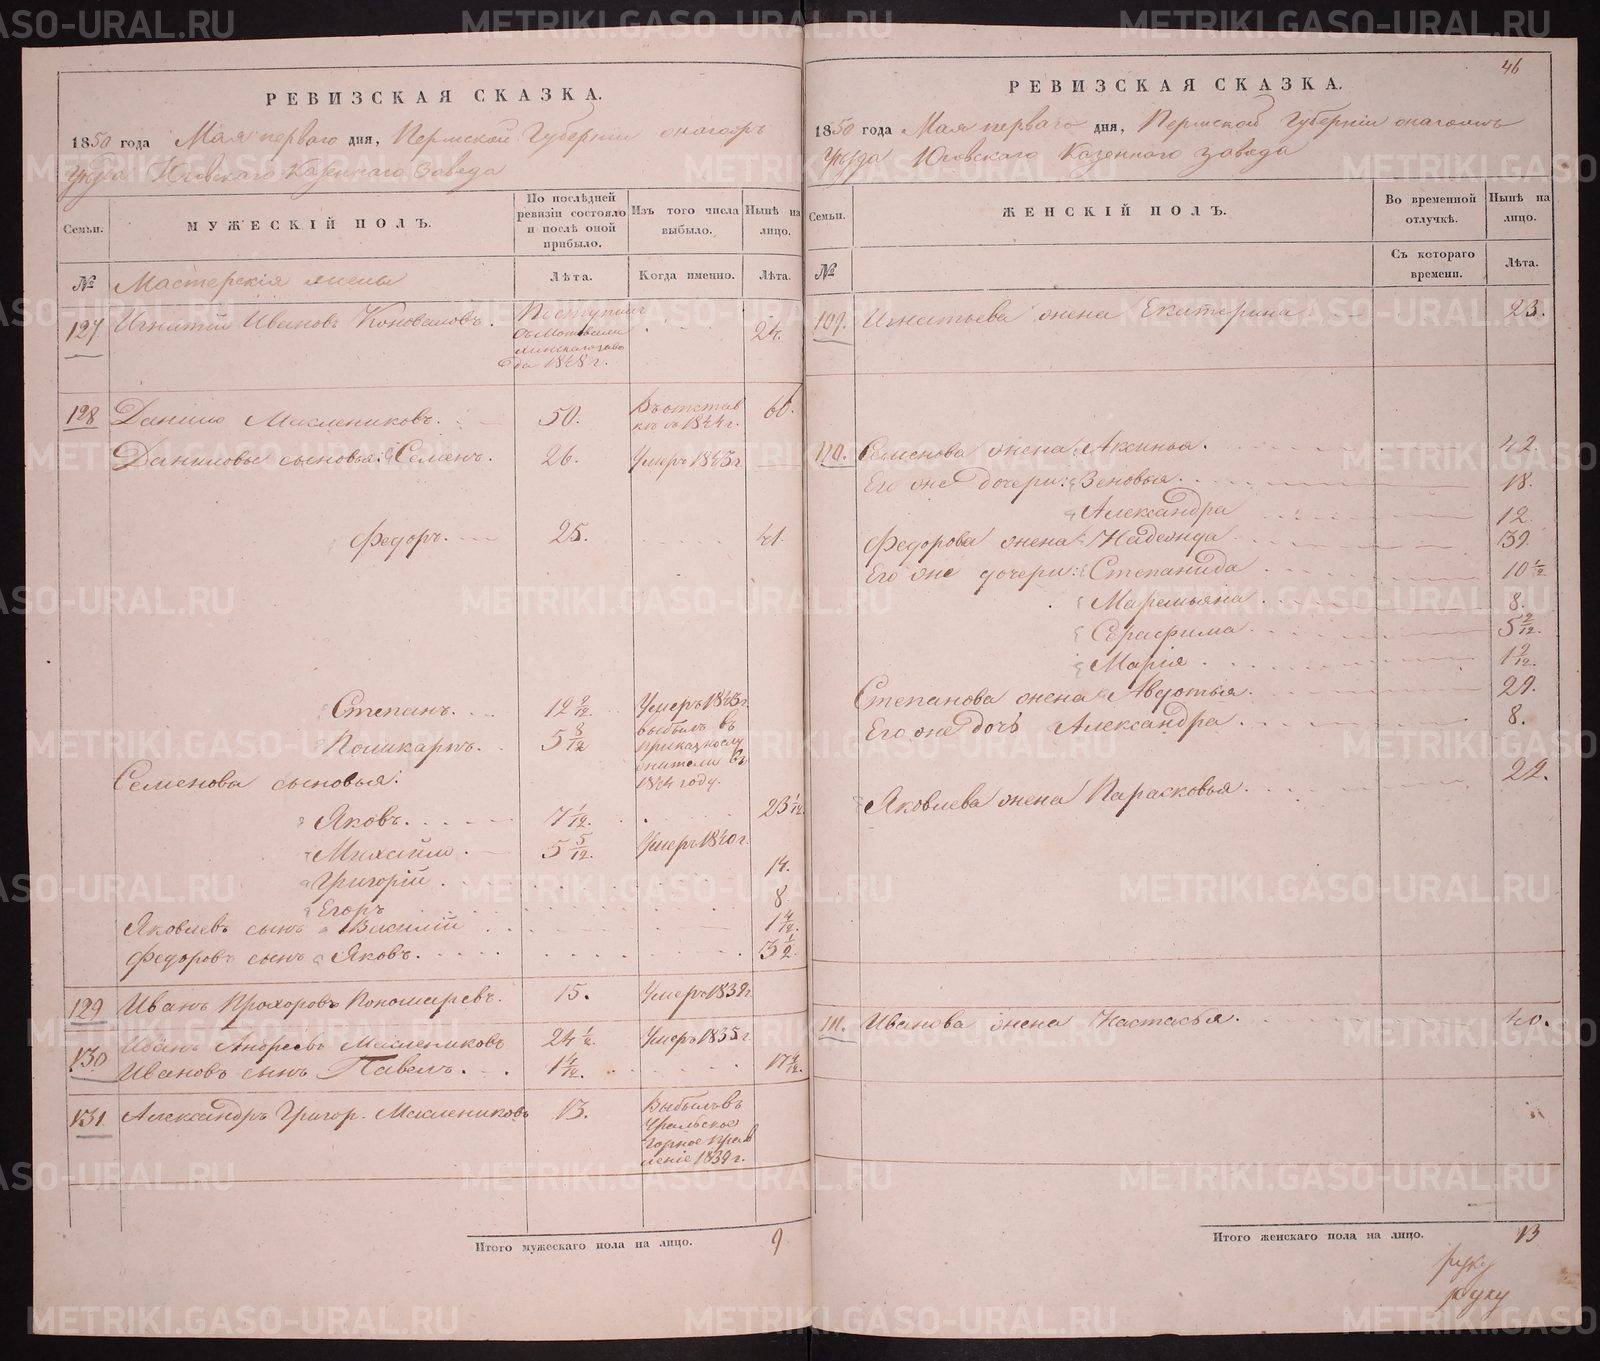 РЕВИЗСКАЯ СКАЗКА.
1850 года Мая перваго дня, Пермской Губернiи
Уѣзда Юговскаго Казеннаго Завода
Семьи.
МУЖЕСКIЙ ПОЛЪ.
По послѣдней ревизiи состояло и послѣ оной прибыло.
Изъ того числа выбыло.
Нынѣ на лицо.
№
Мастерскiя
Лѣта.
Когда именно.
Лѣта.
127 Игнатiй Ивановъ Коноваловъ. Поступилъ
24.
да 1848 г.
128 Данило Маслениковъ. 50. Въ отстав
кѣ съ 1844 г. 60.
Даниловы сыновья: Семенъ. 26. Умеръ 1843 г
Федоръ. 25. 41.
Степанъ. 12 9/12. Умеръ 1845 г.
Поликарпъ. 5 8/12 выбылъ въ
приказнослу
жители въ
1844 году.
Семенова сыновья:
Яковъ. 7 1/12. 23 1/12
Михайло. 5 5/12. Умеръ 1840 г.
Григорiй. 14.
Егоръ 8
Яковлевъ сынъ Василiй 1 4/12.
Федоровъ сынъ Яковъ. 3 1/2.
129 Иванъ Прохоровъ Пономаревъ. 15. Умеръ 1839 г
130 Иванъ Андреевъ Маслениковъ 24 1/2. Умеръ 1835 г
Ивановъ сынъ Павелъ. 1 4/12. 17 4/12.
131 Александръ Григор. Маслениковъ 13. Выбылъ въ
Уральское
Горное Прав
ленiе 1839 г.
Итого мужескаго пола на лицо. 9
46
РЕВИЗСКАЯ СКАЗКА.
1850 года Мая перваго дня, Пермской Губернiи
Уѣзда Юговскаго Казеннаго завода
Семьи.
ЖЕНСКIЙ ПОЛЪ.
Во временной отлучкѣ.
Нынѣ на лицо.
№
Съ котораго времени.
Лѣта.
109. Игнатьева жена Екатерина 23.
110. Семенова жена Аксинья. 42.
Его же дочери: Зеновья. 18.
Александра 12.
Федорова жена Надежда. 39.
Его же дочери: Степанида 10 1/2
Маремьяна. 8.
Серафима. 5 2/12.
Марiя. 1 2/12.
Степанова жена Авдотья. 29.
Его же дочь Александра. 8.
Яковлева жена Парасковья. 22.
111. Иванова жена Настасья. 40.
Итого женскаго пола на лицо. 13
руку
руку
METRIKI.GASO-URAL.RU